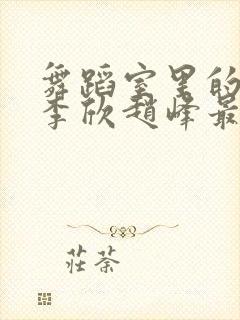 舞蹈室里的
李欣赵峰最
莊荼